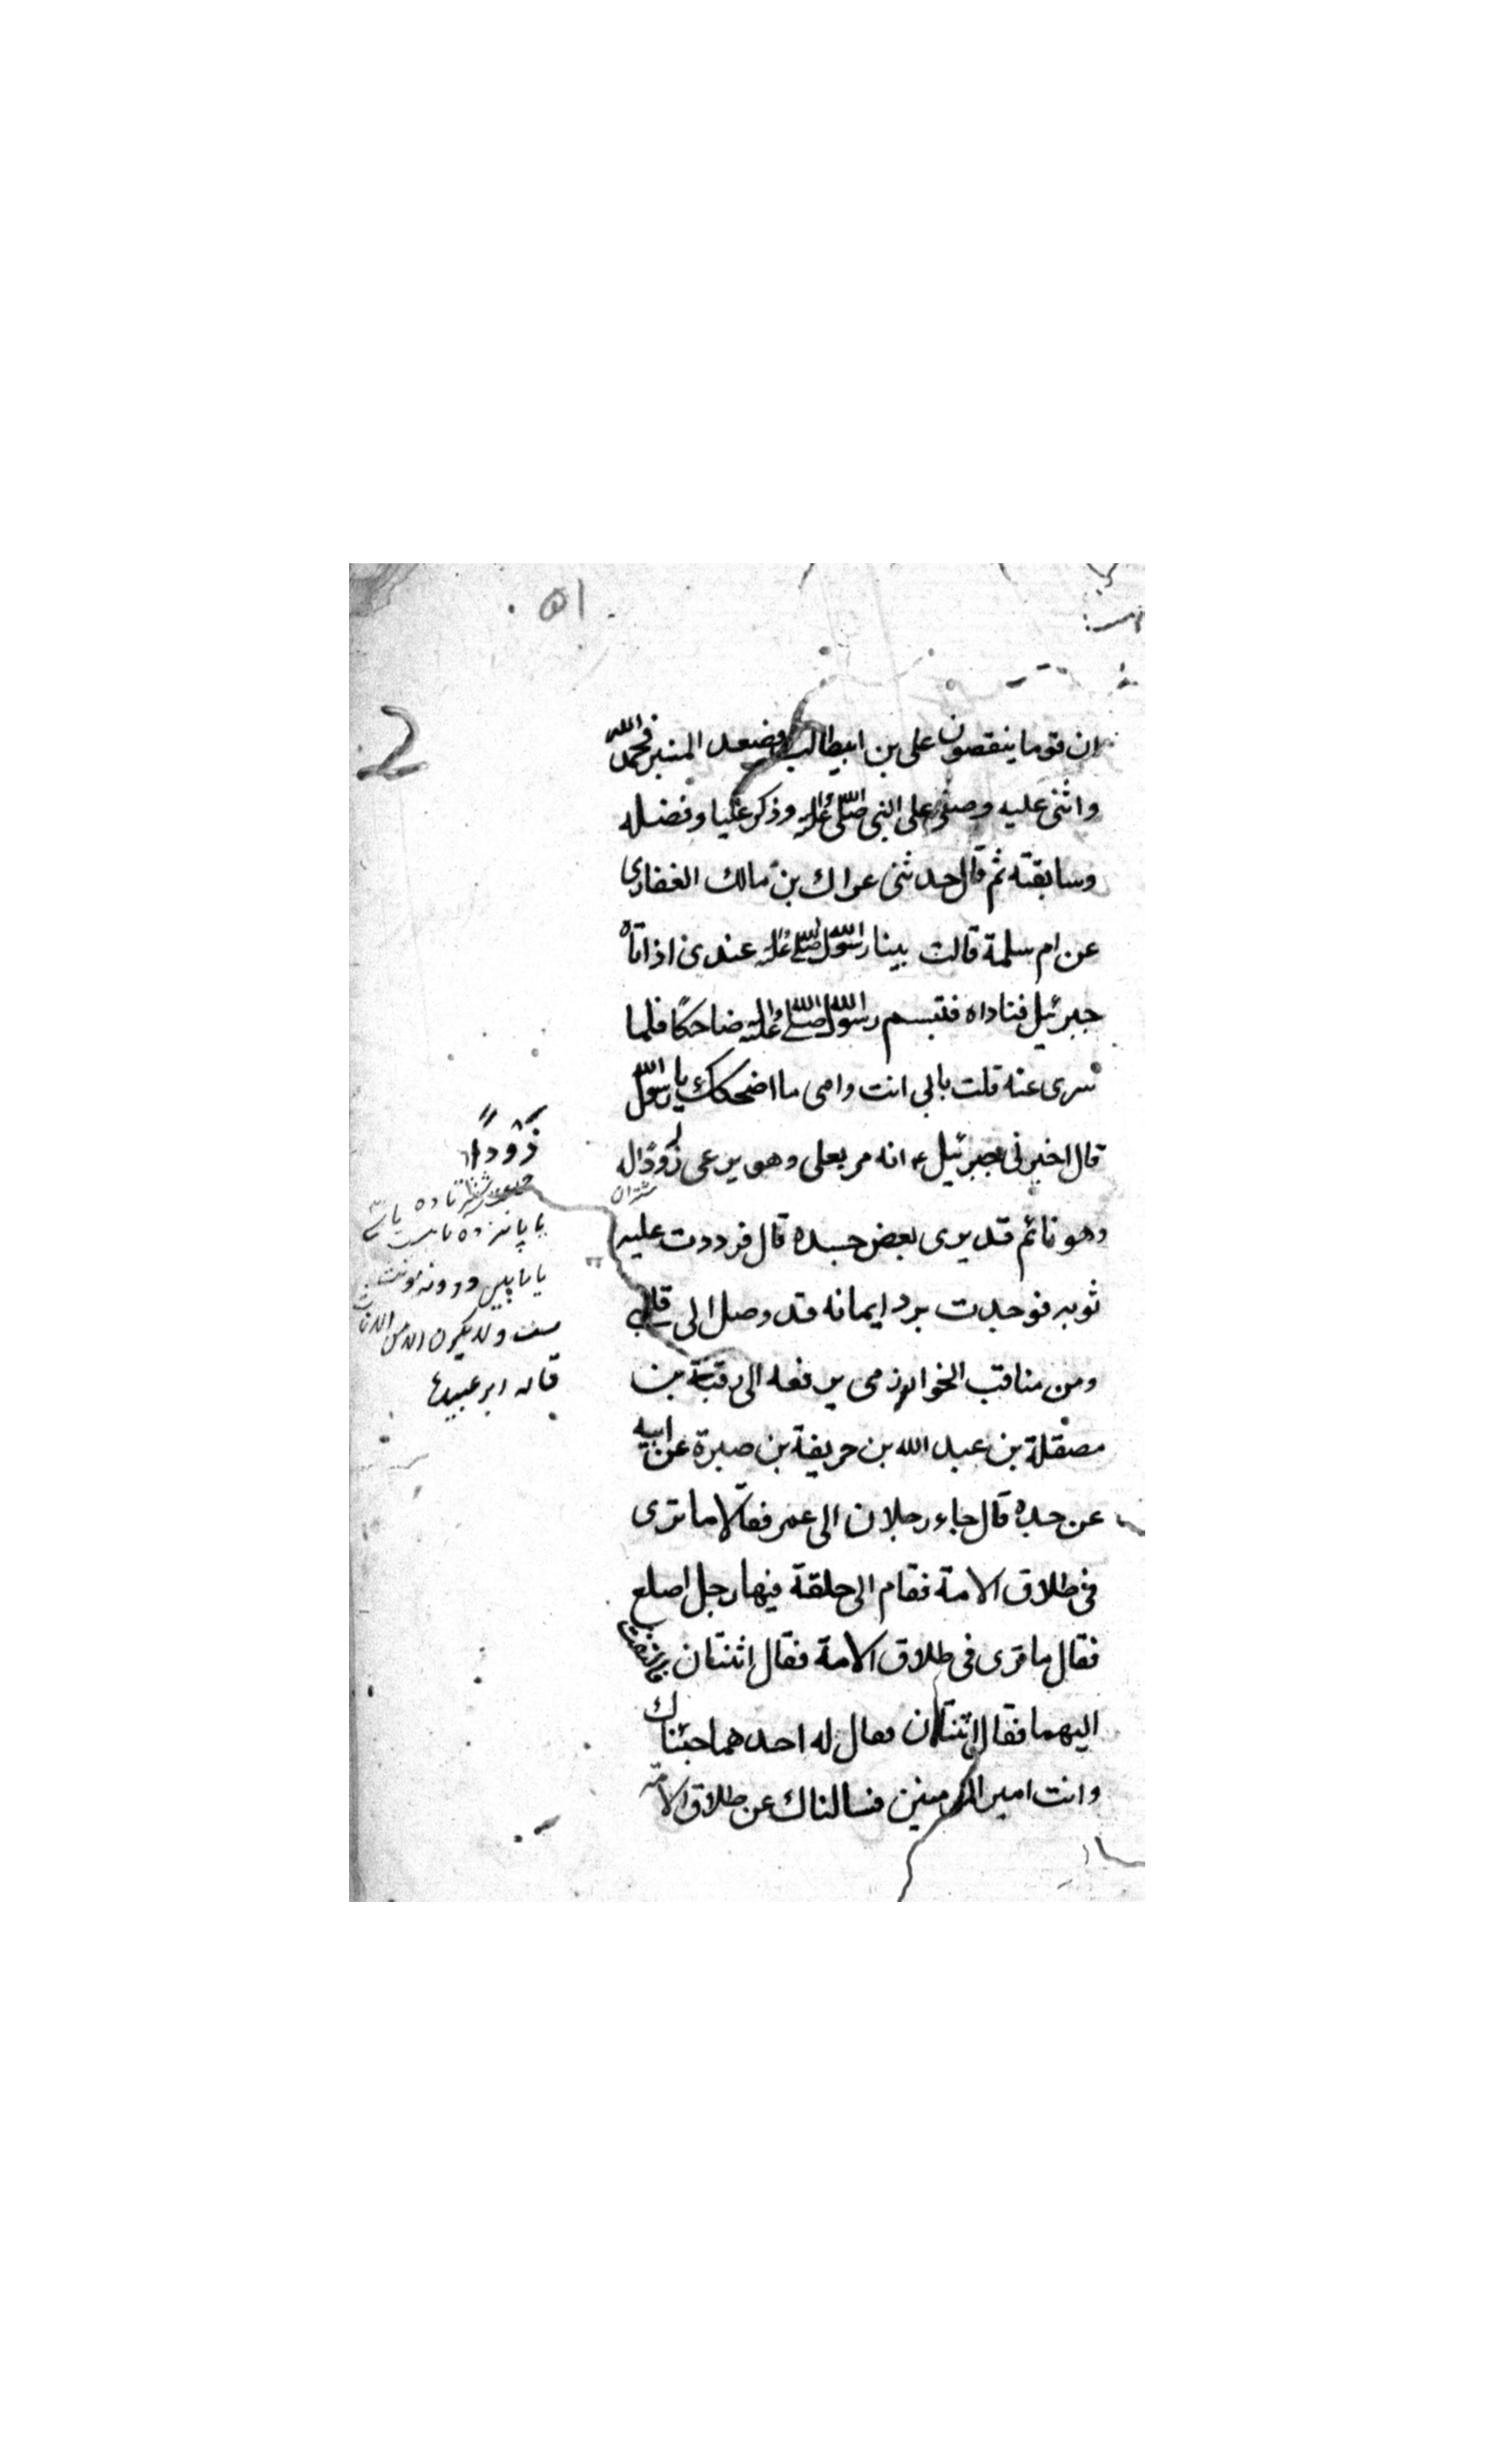 ۱۵
ان قوما ينقصون علی بن ابيطالب فصعد المنبر فحمد الله
واثنی عليه وصلی علی النبی صلی الله عليه وذکر عليا وفضله
وسابقته ثم قال حدثنی عراك بن مالك الغفاری
عن ام سلمة قالت بينا رسول الله صلی الله عليه عندی اذ اتاه
جبرئيل فناداه فتبسم رسول الله صلی الله عليه ضاحكًا فلما
سری عنه قلت بابی انت وامی ما اضحكك يا رسول الله
قال اخبرنی جبرئيل انه مر بعلی وهو يرعی ذودًا له
شتران
وهو نائم قد يری بعض جسده قال فرددت عليه
ثوبه فوجدت برد ايمانه قد وصل الی قلبی
ومن مناقب الخوارزمی يرفعه الی رقبة بن
مصقلة بن عبد الله بن حريفة بن صبرة عن ابيه
عن جده قال جاء رجلان الی عمر فقالا ما تری
فی طلاق الامة فقام الی حلقة فيها رجل اصلع
فقال ما تری فی طلاق الامة فقال اثنتان فالتفت
اليهما فقال اثنتان فقال له احدهما جئناك
وانت امير المومنين فسالناك عن طلاق الامة
ذَوْدًا
تا ده يا
يا پانزده تا بيست
يا
قاله ابو عبيد
2